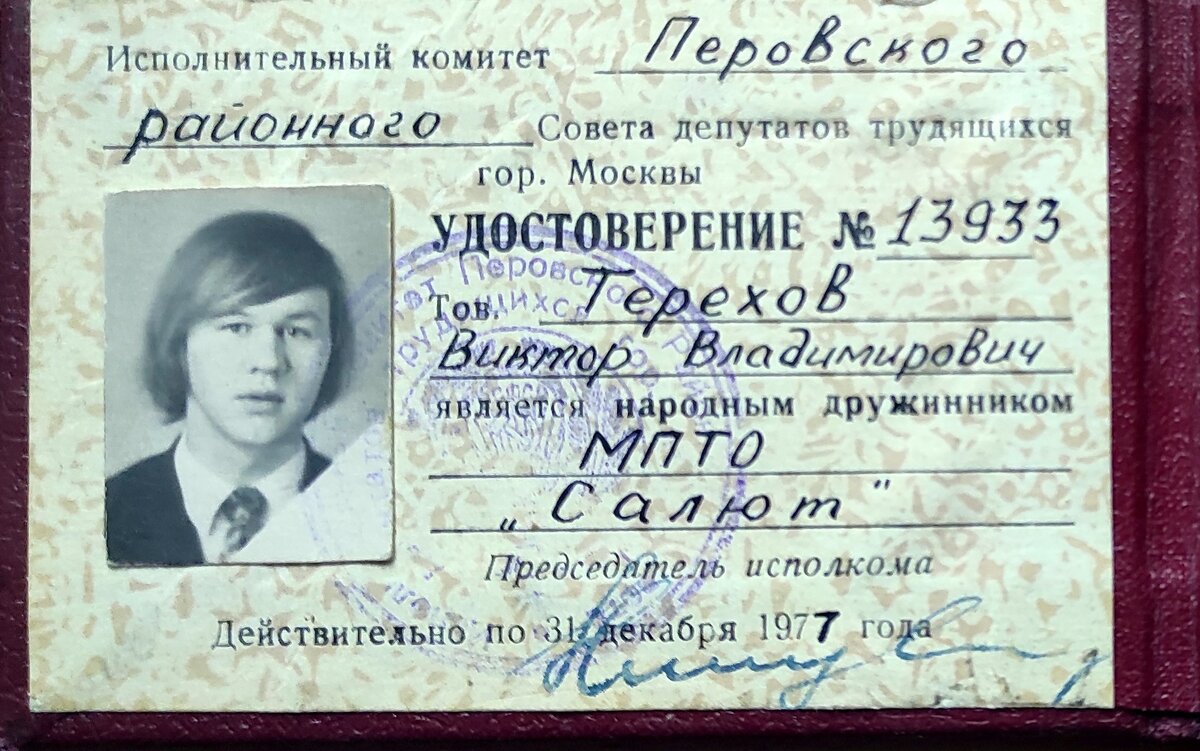 Исполнительный комитет Перовского
районного Совета депутатов трудящихся
гор. Москвы
УДОСТОВЕРЕНИЕ № 13933
Тов. Терехов
Виктор Владимирович
является народным дружинником
МПТО
„Салют"
Председатель исполкома
Действительно по 31 декабря 1977 года